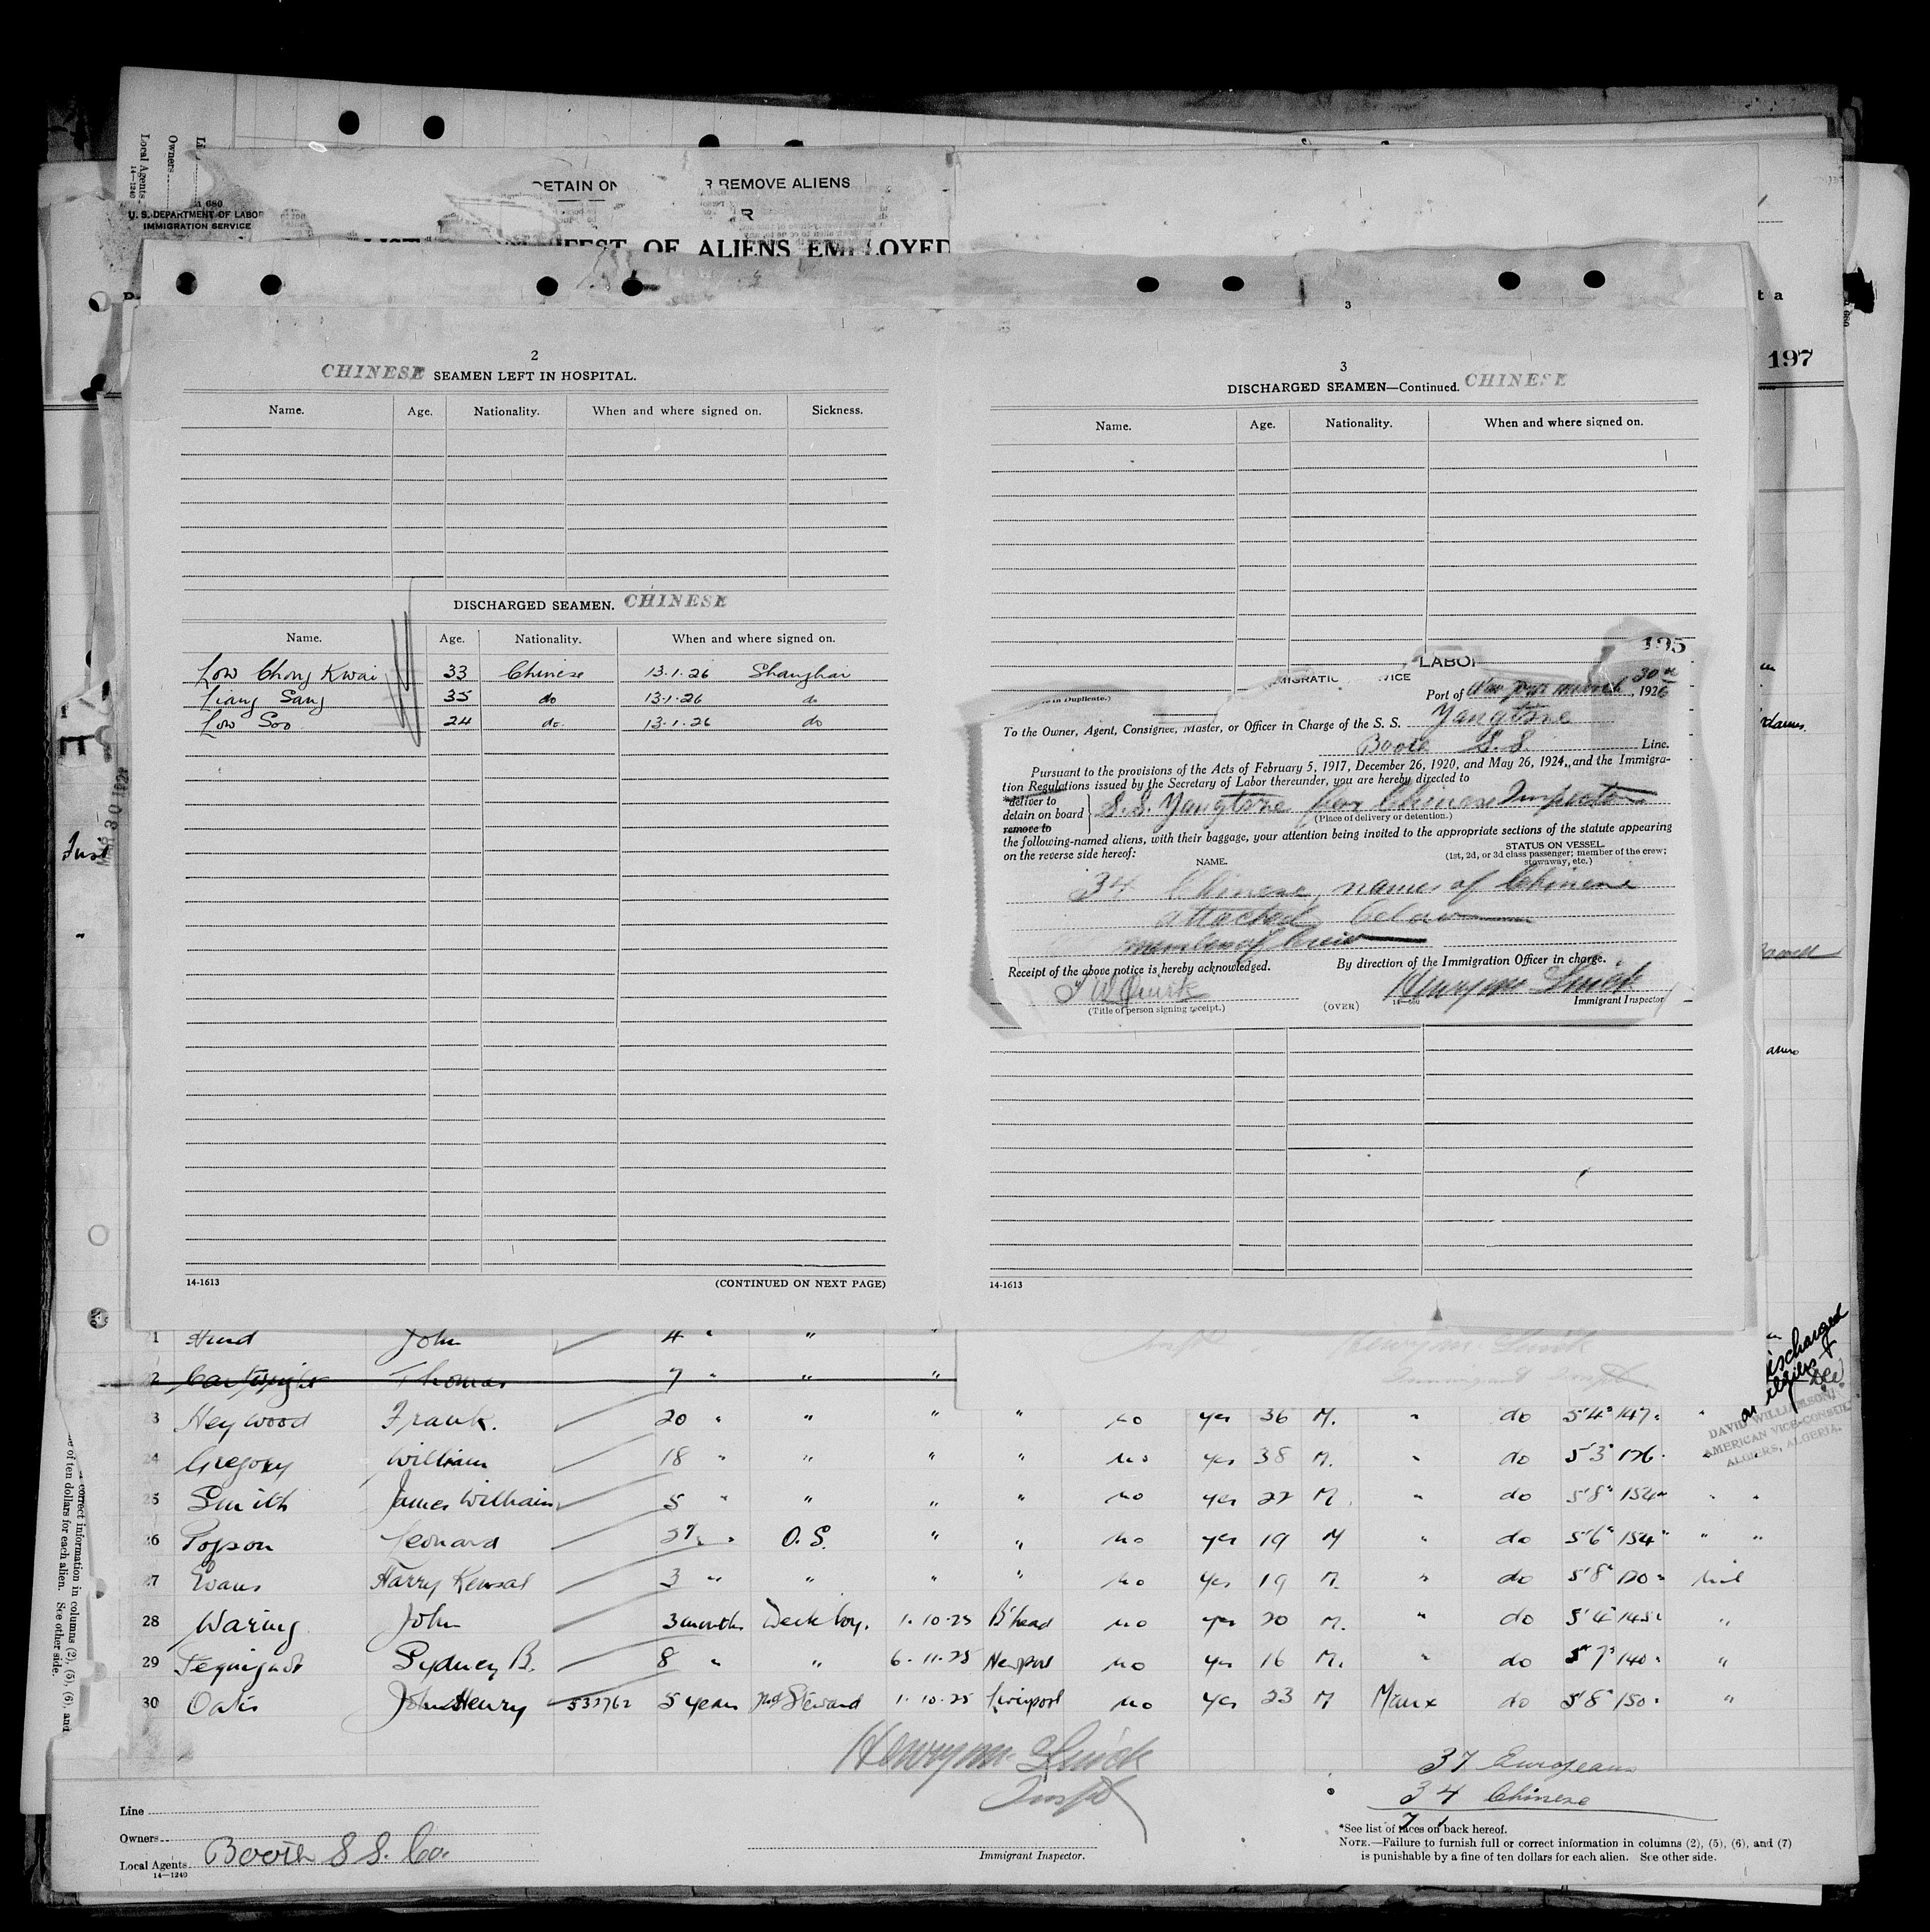 Local Agents
Owners
14-1240
680
U. S. DEPARTMENT OF LABOR
IMMIGRATION SERVICE
DETAIN ON
R REMOVE ALIENS
OF ALIENS EMPLOYED
197
2
CHINESE SEAMEN LEFT IN HOSPITAL.
Name. Age. Nationality. When and where signed on. Sickness.
DISCHARGED SEAMEN. CHINESE
Name. Age. Nationality. When and where signed on.
Low Chong Kwai 33 Chinese 13-1-26 Shanghai
Liang Sang 35 do 13-1-26 do
Low Soo 24 do. 13-1-26 do
14-1613 (CONTINUED ON NEXT PAGE)
3
3
DISCHARGED SEAMEN—Continued. CHINESE
Name. Age. Nationality. When and where signed on.
195
LABOR
Port of New York March 30th, 1926
To the Owner, Agent, Consignee, Master, or Officer in Charge of the S. S. Yangtsze
Booth S. S. Line.
Pursuant to the provisions of the Acts of February 5, 1917, December 26, 1920, and May 26, 1924, and the Immigra-
tion Regulations issued by the Secretary of Labor thereunder, you are hereby directed to
*deliver to
detain on board S. S. Yangtsze for Chinese Inspection
(Place of delivery or detention.)
remove to
the following-named aliens, with their baggage, your attention being invited to the appropriate sections of the statute appearing
on the reverse side hereof:
NAME.
STATUS ON VESSEL.
(1st, 2d, or 3d class passenger; member of the crew;
stowaway, etc.)
34 Chinese, names of Chinese
attached below
members of Crew
Receipt of the above notice is hereby acknowledged.
By direction of the Immigration Officer in charge.
(Title of person signing receipt.)
(OVER)
Immigrant Inspector
14-1613
1 Hind John 4 " " "
2 Cartwright Thomas 7 " " "
3 Heywood Frank. 20 " " " " no yes 36 M. " do 5'4" 147 "
24 Gregory William 18 " " " " no yes 38 M. " do 5'3" 176
25 Smith James William 5 " " " " no yes 22 M. " do 5'8" 154 " "
26 Popson Leonard O.S. " " no yes 19 M " do 5'6" 154 " "
27 Evans Harry 3 " " " " no yes 19 M. " do 5'8" 120 nil
28 Waring John 3 months Deck boy. 1-10-25 B'head no yes 20 M. " do 5'4" 145 "
29 Sydney B. 8 " " 6-11-25 Newport no yes 16 M. " do 5'7" 140 "
30 Oates John Henry 537762 5 years Steward 1-10-25 Liverpool no yes 23 M Manx do 5'8" 150 "
discharged
DAVID WILLIAMSON
AMERICAN VICE-CONSUL
ALGIERS, ALGERIA.
37 Europeans
34 Chinese
71
Line
Owners
Booth S S. Co.
Local Agents
14-1240
Immigrant Inspector.
*See list of races on back hereof.
NOTE.—Failure to furnish full or correct information in columns (2), (5), (6), and (7)
is punishable by a fine of ten dollars for each alien. See other side.
correct information in columns (2), (5), (6), and
of ten dollars for each alien. See other side.